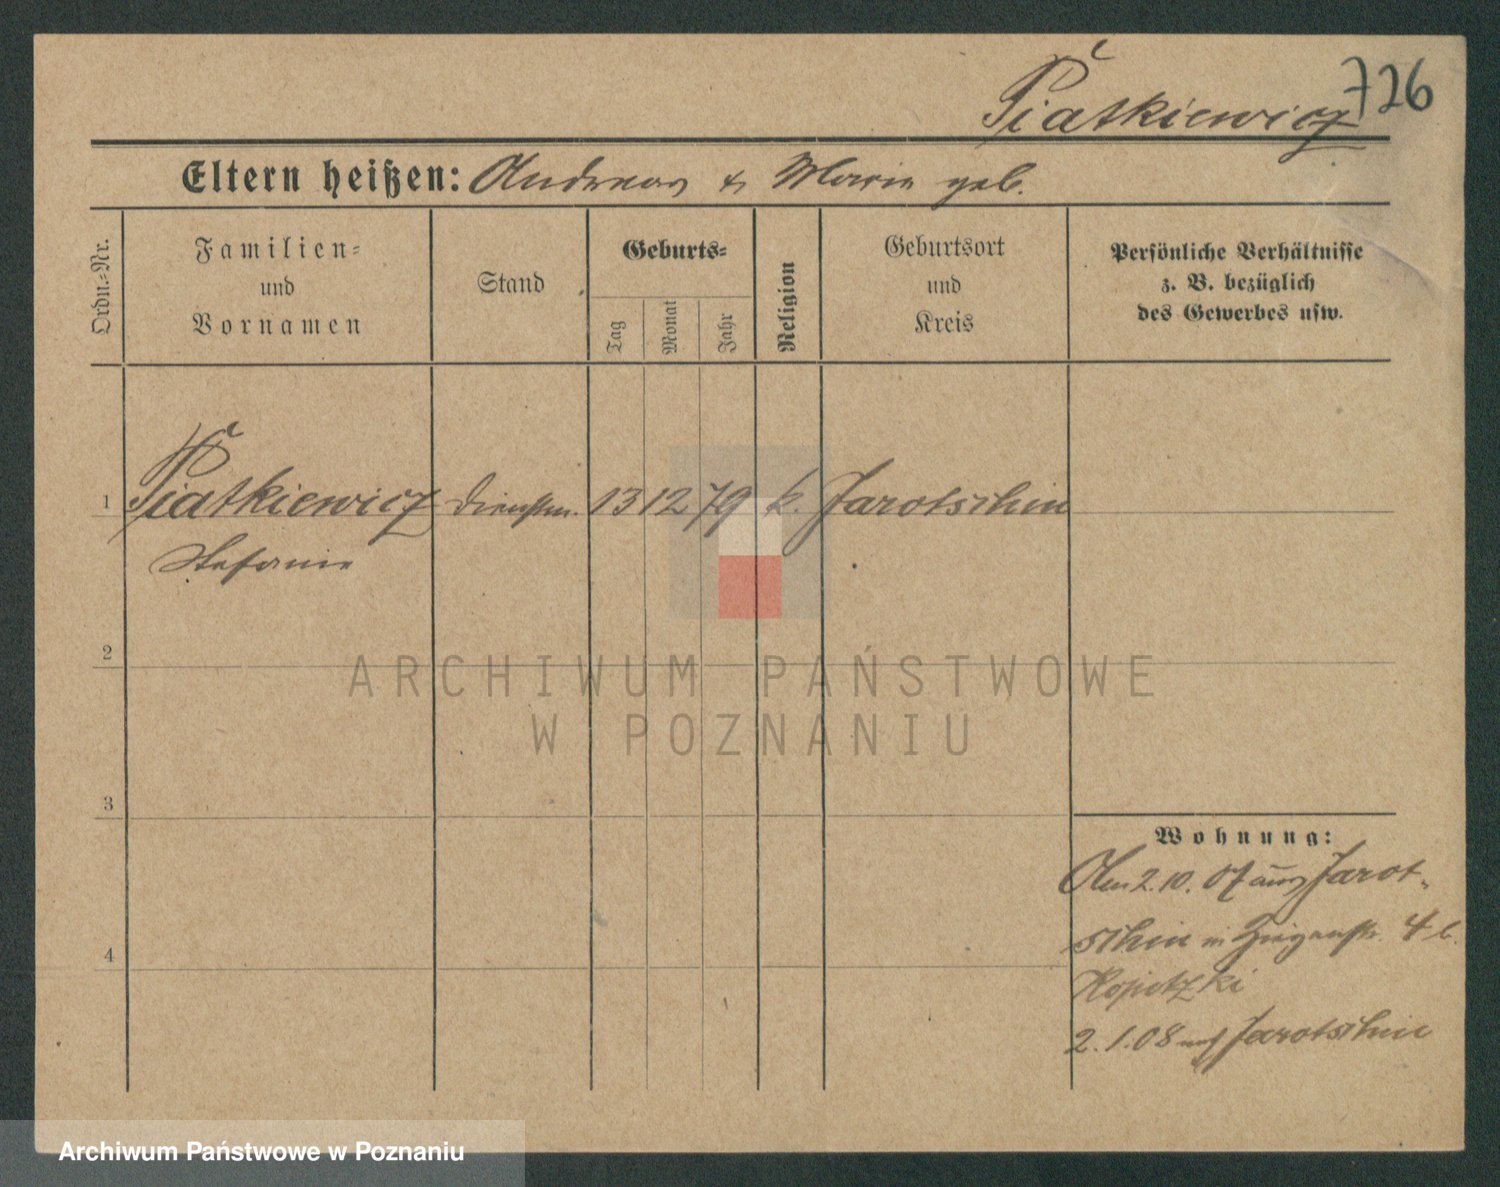 Piatkiewicz 726
Eltern heißen: Andreas & Marie geb.
Ordn.-Nr.
Familien-
und
Vornamen
Stand
Geburts-
Tag
Monat
Jahr
Religion
Geburtsort
und
Kreis
Persönliche Verhältnisse
z. B. bezüglich
des Gewerbes usw.
1 Piatkiewicz Dienstm. 13 12 79 k. Jarotschin
Stefanie
2
ARCHIWUM PAŃSTWOWE
W POZNANIU
3
Wohnung:
Am 2.10.07 aus Jarot-
schin in 4 b.
4
Kopetzki
2.1.08 nach Jarotschin
Archiwum Państwowe w Poznaniu